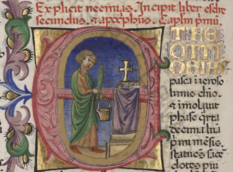 Explicit neemias. Incipit liber esdre
secundus, & apocriphus. Caplm primu.
pasca i ieroso
limis dño.
& imolauit
phase qrta
decima lua
pmi mēsis.
statuēs sace
dotes